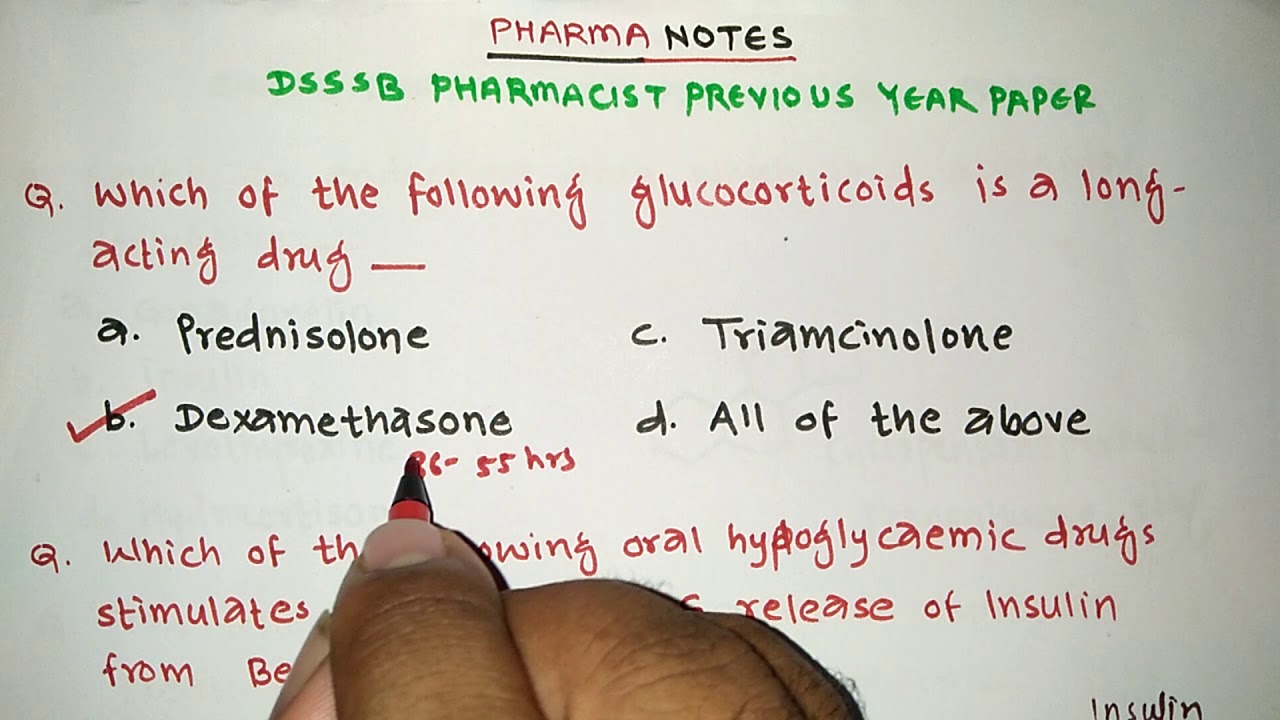 PHARMA NOTES
DSSSB PHARMACIST PREVIOUS YEAR PAPER
Q. Which of the following glucocorticoids is a long-
acting drug —
a. Prednisolone
c. Triamcinolone
b. Dexamethasone
d. All of the above
55 hrs
Q. Which of oral hypoglycaemic drugs
stimulates release of Insulin
from
Insulin